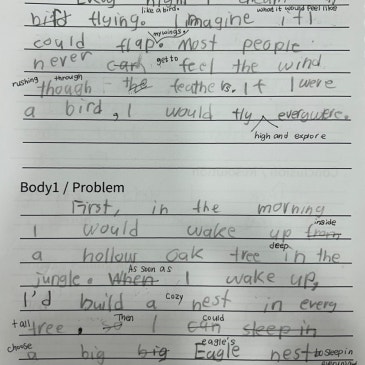 like a bird. what it would feel like
bird flying. I imagine if I
my wings.
could flap. Most people
get to
never can feel the wind
rushing through
though the feathers. If I were
a bird, I would fly everywere.
high and explore
Body1 / Problem
First, in the morning
inside
I would wake up from
deep
a hollow oak tree in the
As soon as
jungle. When I wake up,
cozy
I'd build a nest in every
tall Then could
tree. so I can sleep in
choose eagle's
a big big Eagle nest to sleep in